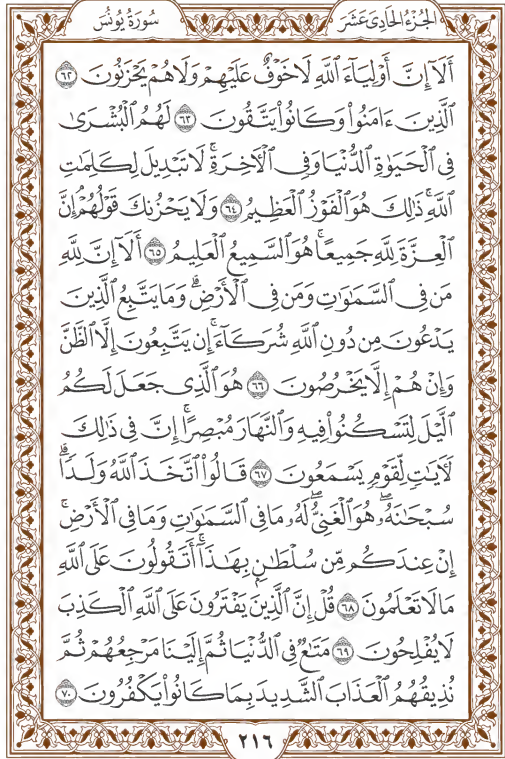 الجُزْءُ الحَادِىَ عَشَرَ
سُورَةُ يُونُسَ
أَلَآ إِنَّ أَوْلِيَآءَ ٱللَّهِ لَا خَوْفٌ عَلَيْهِمْ وَلَا هُمْ يَحْزَنُونَ ٦٢
ٱلَّذِينَ ءَامَنُوا۟ وَكَانُوا۟ يَتَّقُونَ ٦٣ لَهُمُ ٱلْبُشْرَىٰ
فِى ٱلْحَيَوٰةِ ٱلدُّنْيَا وَفِى ٱلْأَخِرَةِ ۚ لَا تَبْدِيلَ لِكَلِمَٰتِ
ٱللَّهِ ۚ ذَٰلِكَ هُوَ ٱلْفَوْزُ ٱلْعَظِيمُ ٦٤ وَلَا يَحْزُنكَ قَوْلُهُمْ ۘ إِنَّ
ٱلْعِزَّةَ لِلَّهِ جَمِيعًا ۚ هُوَ ٱلسَّمِيعُ ٱلْعَلِيمُ ٦٥ أَلَآ إِنَّ لِلَّهِ
مَن فِى ٱلسَّمَٰوَٰتِ وَمَن فِى ٱلْأَرْضِ ۗ وَمَا يَتَّبِعُ ٱلَّذِينَ
يَدْعُونَ مِن دُونِ ٱللَّهِ شُرَكَآءَ ۚ إِن يَتَّبِعُونَ إِلَّا ٱلظَّنَّ
وَإِنْ هُمْ إِلَّا يَخْرُصُونَ ٦٦ هُوَ ٱلَّذِى جَعَلَ لَكُمُ
ٱلَّيْلَ لِتَسْكُنُوا۟ فِيهِ وَٱلنَّهَارَ مُبْصِرًا ۚ إِنَّ فِى ذَٰلِكَ
لَأَيَٰتٍ لِّقَوْمٍ يَسْمَعُونَ ٦٧ قَالُوا۟ ٱتَّخَذَ ٱللَّهُ وَلَدًا ۗ
سُبْحَٰنَهُۥ ۖ هُوَ ٱلْغَنِىُّ ۖ لَهُۥ مَا فِى ٱلسَّمَٰوَٰتِ وَمَا فِى ٱلْأَرْضِ ۚ
إِنْ عِندَكُم مِّن سُلْطَٰنٍۭ بِهَٰذَآ ۚ أَتَقُولُونَ عَلَى ٱللَّهِ
مَا لَا تَعْلَمُونَ ٦٨ قُلْ إِنَّ ٱلَّذِينَ يَفْتَرُونَ عَلَى ٱللَّهِ ٱلْكَذِبَ
لَا يُفْلِحُونَ ٦٩ مَتَٰعٌ فِى ٱلدُّنْيَا ثُمَّ إِلَيْنَا مَرْجِعُهُمْ ثُمَّ
نُذِيقُهُمُ ٱلْعَذَابَ ٱلشَّدِيدَ بِمَا كَانُوا۟ يَكْفُرُونَ ٧٠
٢١٦